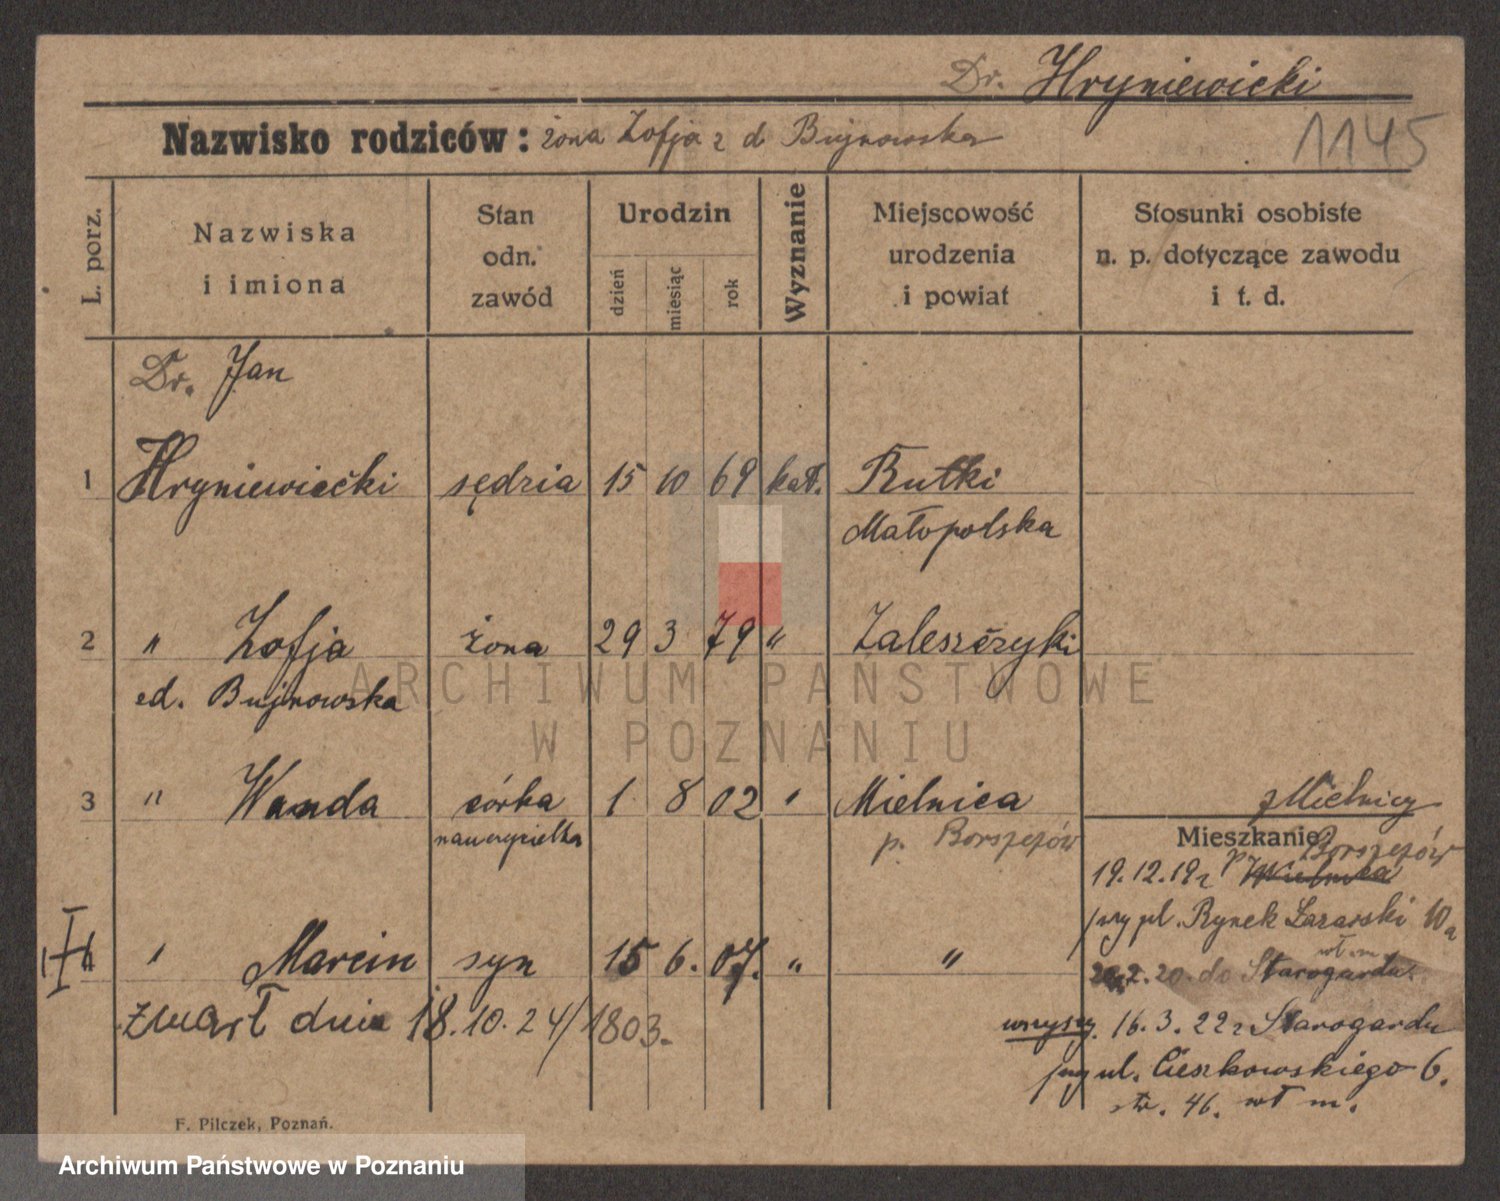 Dr. Hryniewicki
Nazwisko rodziców: żona Zofja z d Bujnowska
1145
L. porz.
Nazwiska i imiona
Stan odn. zawód
Urodzin
dzień
miesiąc
rok
Wyznanie
Miejscowość urodzenia i powiat
Stosunki osobiste n. p. dotyczące zawodu i t. d.
Dr. Jan
1 Hryniewiecki sędzia 15 10 69 kat. Rutki
Małopolska
2 " Zofja żona 29 3 79 " Zaleszczyki
ed. Bujnowska
3 " Wanda córka 1 8 02 " Mielnica
nauczycielka p. Borszczów
z Mielnicy
Mieszkanie
p. Borszczów
19.12.19 r Mielnica
przy pl. Rynek Łazarski 10a
wł. m.
20.2.20. do Starogardu
" Marcin syn 15 6. 07. " "
zmarł dnia 18.10.24/1803.
wszyscy. 16.3.22 z Starogardu
przy ul. Cieszkowskiego 6.
str. 46. wł m.
F. Pilczek, Poznań.
ARCHIWUM PAŃSTWOWE
W POZNANIU
Archiwum Państwowe w Poznaniu